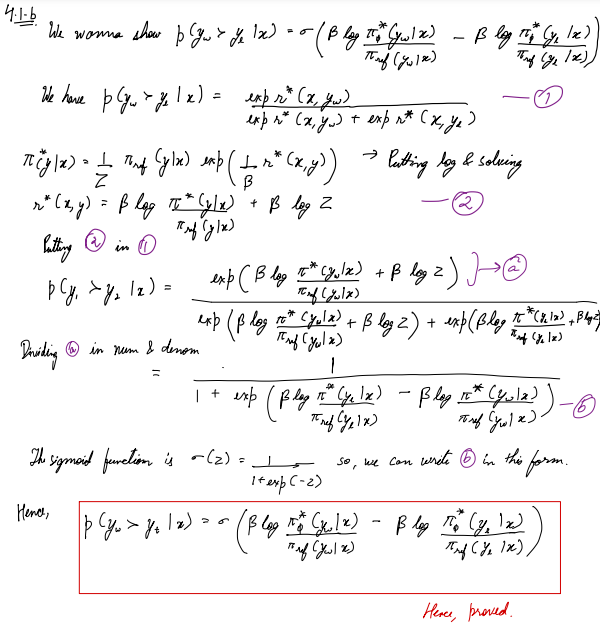 4.1-b
We wanna show p(y_w ≻ y_l | x) = σ( β log π*_ϕ(y_w|x) / π_ref(y_w|x) − β log π*_ϕ(y_l|x) / π_ref(y_l|x) )
We have p(y_w ≻ y_l | x) = exp r*(x, y_w) / exp r*(x, y_w) + exp r*(x, y_l) — ①
π*(y|x) = 1/Z π_ref(y|x) exp( 1/β r*(x,y) ) → Putting log & solving
r*(x,y) = β log π*(y|x) / π_ref(y|x) + β log Z — ②
Putting ② in ①
p(y_1 ≻ y_2 | x) = exp( β log π*(y_w|x) / π_ref(y_w|x) + β log Z ) } → ⓐ / exp( β log π*(y_w|x) / π_ref(y_w|x) + β log Z ) + exp( β log π*(y_l|x) / π_ref(y_l|x) + β log Z )
Dividing ⓐ in num & denom
= 1 / 1 + exp( β log π*(y_l|x) / π_ref(y_l|x) − β log π*(y_w|x) / π_ref(y_w|x) ) — ⓑ
Th sigmoid function is σ(z) = 1 / 1+exp(-z) so, we can write ⓑ in this form.
Hence,
p(y_w ≻ y_l | x) = σ( β log π*_ϕ(y_w|x) / π_ref(y_w|x) − β log π*_ϕ(y_l|x) / π_ref(y_l|x) )
Hence, proved.